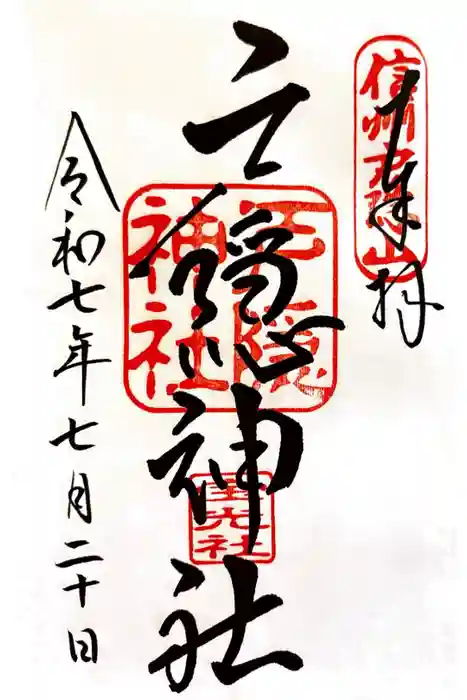 奉拝
信州戸隠山
戸隠神社
戸隠神社
宝光社
令和七年七月二十日